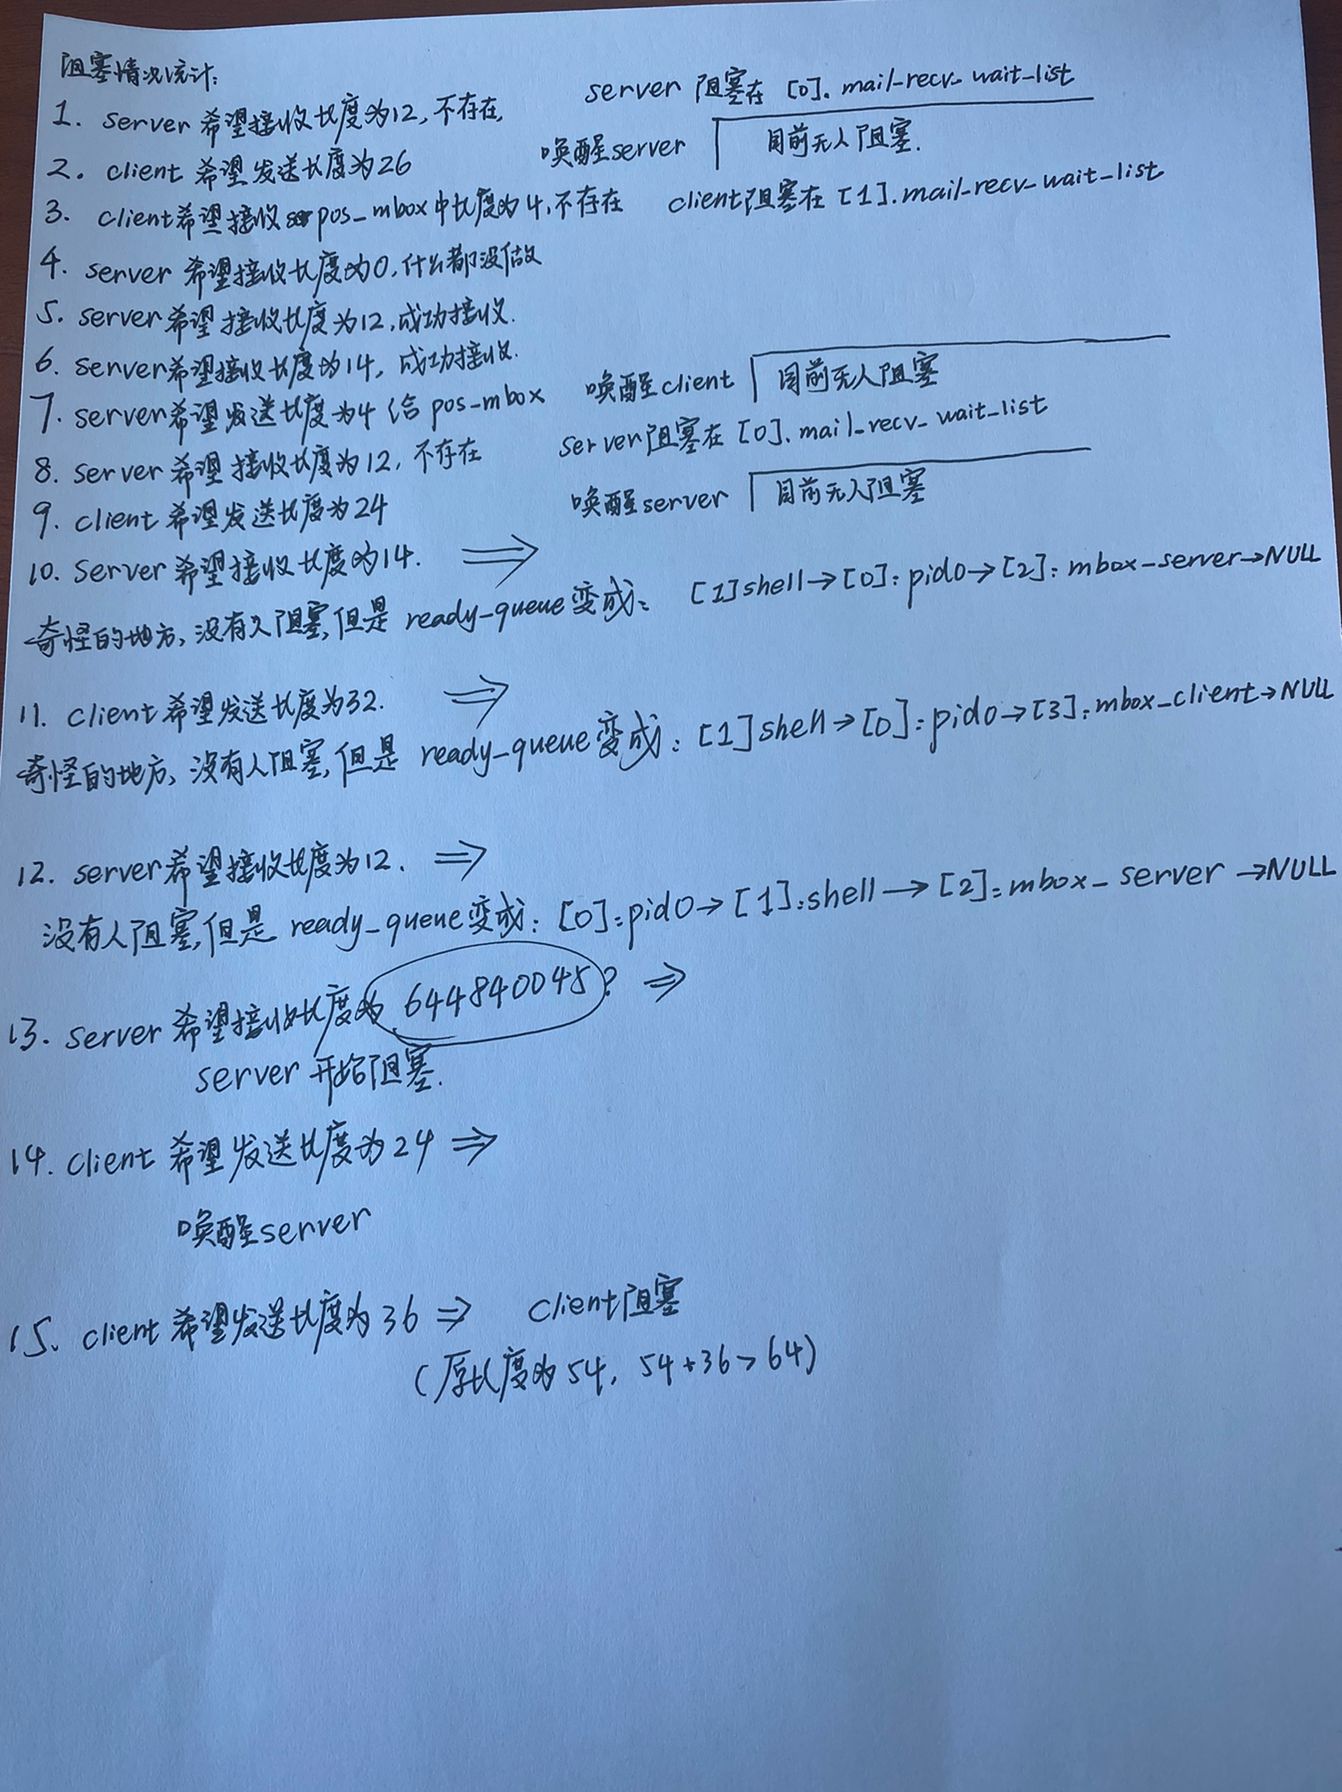 阻塞情况统计:
1. server希望接收长度为12,不存在, server 阻塞在 [0]. mail_recv_wait_list
2. client 希望发送长度为26 唤醒server 目前无人阻塞.
3. client希望接收pos_mbox中长度为4,不存在 client阻塞在[1].mail_recv_wait_list
4. server 希望接收长度为0,什么都没做
5. server希望接收长度为12,成功接收.
6. server希望接收长度为14, 成功接收.
7. server希望发送长度为4给 pos_mbox 唤醒client 目前无人阻塞
8. server 希望接收长度为12, 不存在 server阻塞在[0].mail_recv_wait_list
9. client希望发送长度为24 唤醒server 目前无人阻塞
10. Server希望接收长度为14. ⇒
奇怪的地方,没有人阻塞,但是 ready_queue变成: [1]shell→[0]:pid0→[2]:mbox_server→NULL
11. client希望发送长度为32. ⇒
奇怪的地方,没有人阻塞,但是 ready_queue变成:[1]shell→[0]:pid0→[3]:mbox_client→NULL
12. server希望接收长度为12. ⇒
没有人阻塞,但是 ready_queue变成:[0]:pid0→[1]:shell→[2]:mbox_server→NULL
13. server 希望接收长度为644840045? ⇒
server 开始阻塞.
14. client 希望发送长度为24 ⇒
唤醒server
15. client希望发送长度为36 ⇒ client阻塞
(原长度为54, 54+36>64)